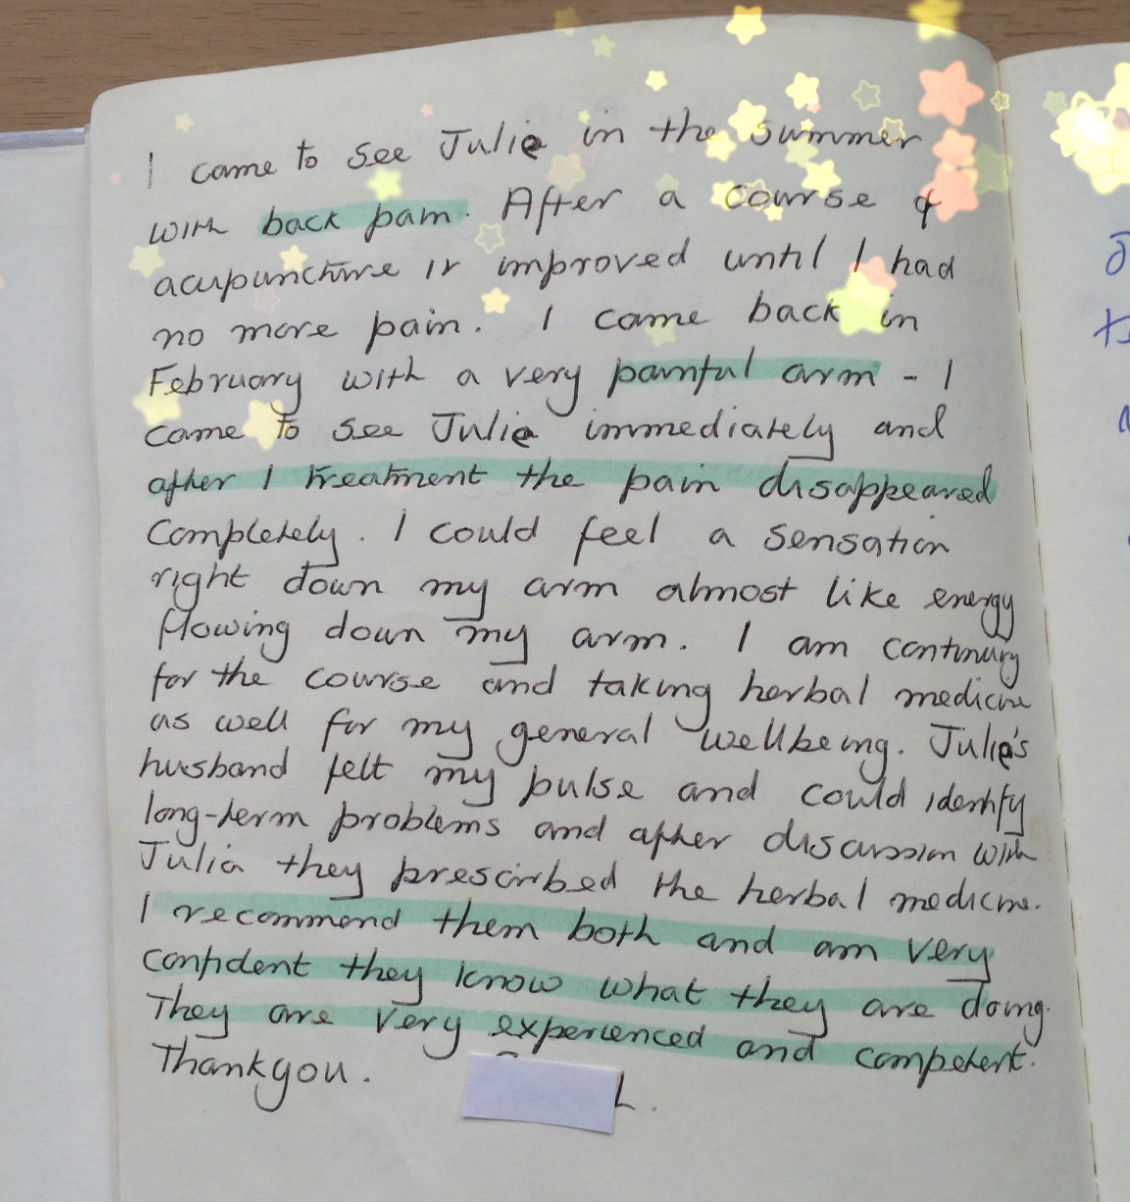 I came to see Julie in the summer
with back pain. After a course of
acupuncture it improved until I had
no more pain. I came back in
February with a very painful arm - I
came to see Julie immediately and
after 1 treatment the pain disappeared
completely. I could feel a sensation
right down my arm almost like energy
flowing down my arm. I am continuing
for the course and taking herbal medicine
as well for my general wellbeing. Julie's
husband felt my pulse and could identify
long-term problems and after discussion with
Julia they prescribed the herbal medicine.
I recommend them both and am very
confident they know what they are doing.
They are very experienced and competent.
Thankyou.
L.